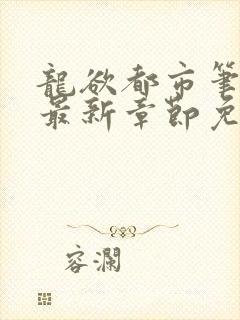 龍欲都市筆
最新章節免
容瀾